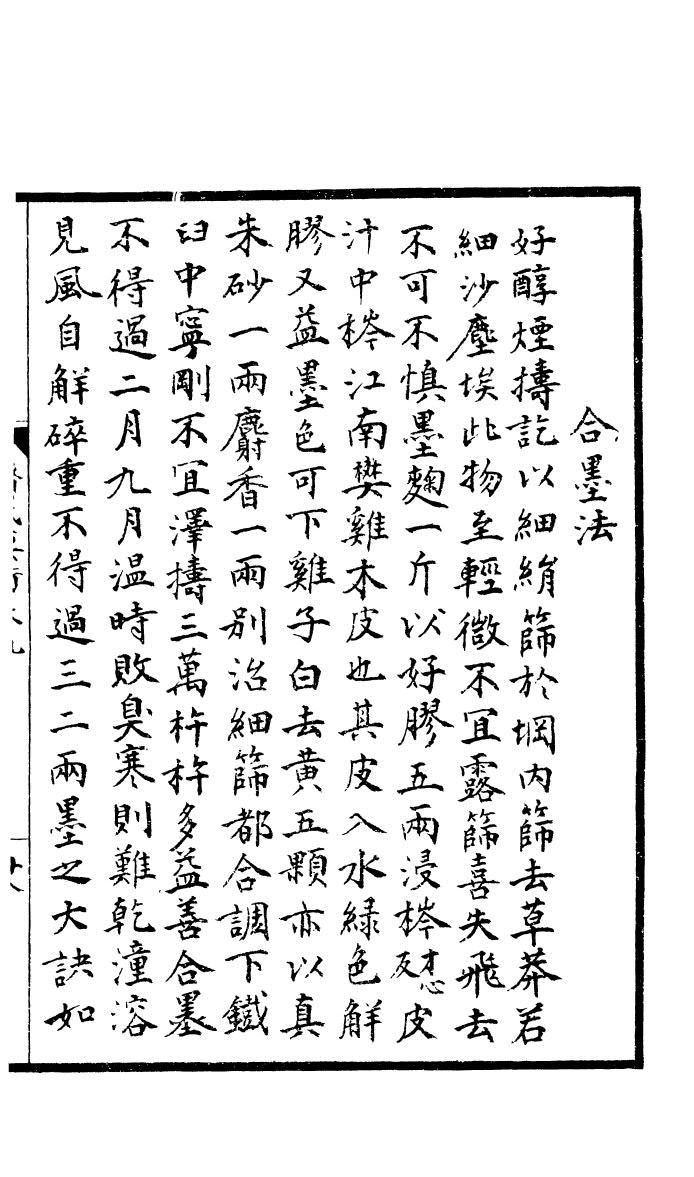 合墨法
好醇煙擣訖以細絹篩於堈内篩去草莽若
細沙塵埃此物至輕微不冝露篩喜失飛去
不可不慎墨麴一斤以好膠五兩浸梣才心反皮
汁中梣江南樊雞木皮也其皮入水綠色解
膠又益墨色可下雞子白去黄五顆亦以真
朱砂一兩麝香一兩別治細篩都合調下鐵
臼中寧剛不冝澤擣三萬杵杵多益善合墨
不得過二月九月温時敗臭寒則難乾潼溶
見風自解碎重不得過三二兩墨之大訣如